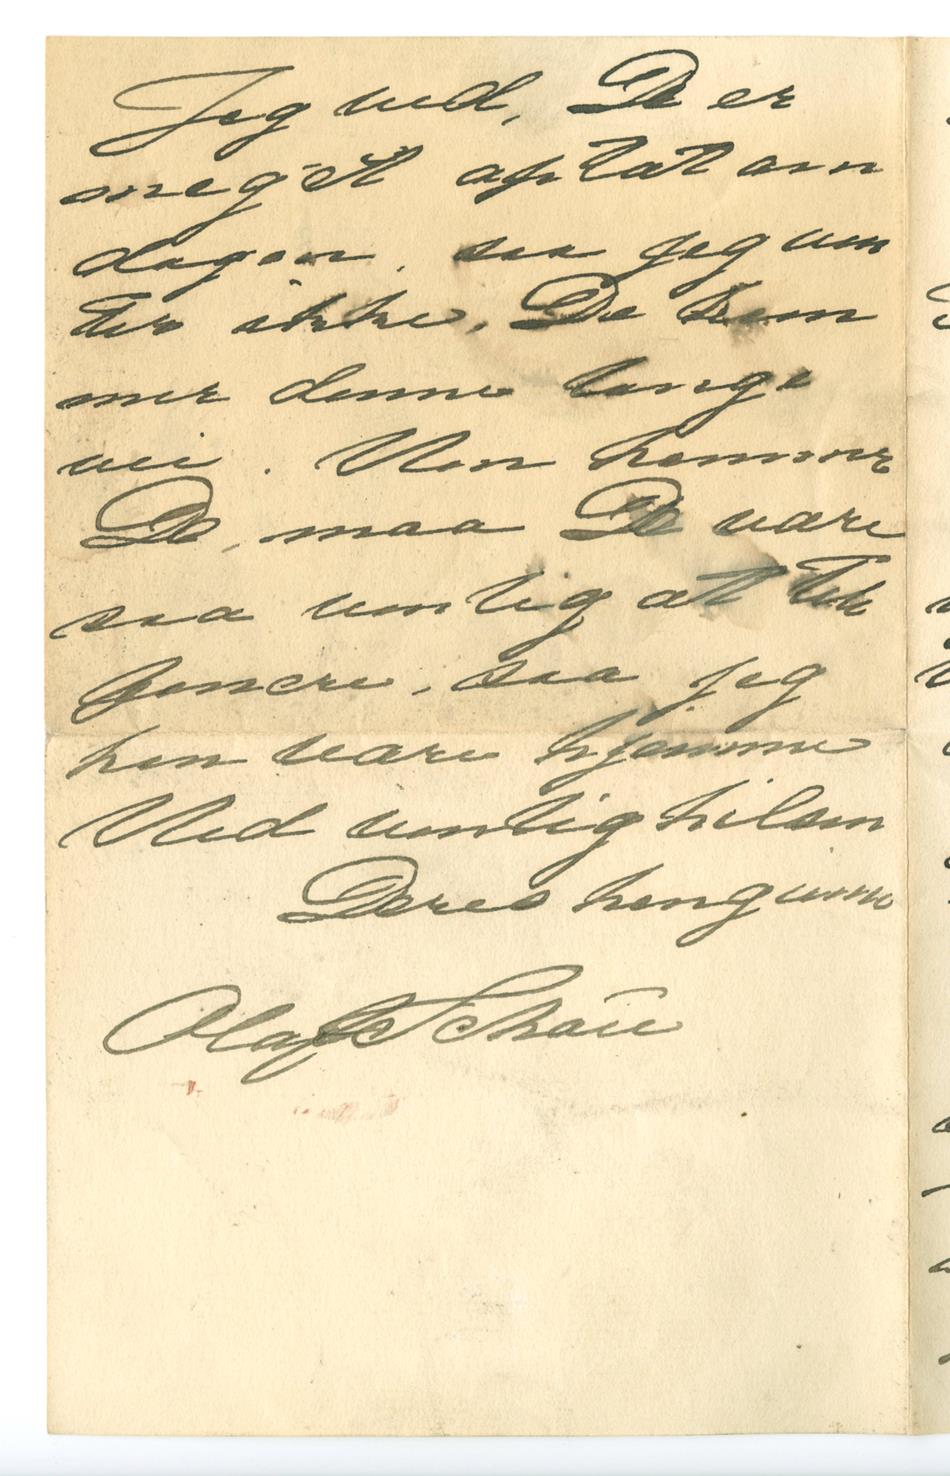 Jeg ved, De er
meget optat om
dagen, saa jeg ven
ter ikke, De kom
mer denne lange
vei. Men kommer
De, maa De være
saa venlig at tele
fonere, saa jeg
kan være hjemme
Med venlig hilsen
Deres hengivne
Olaf Schou